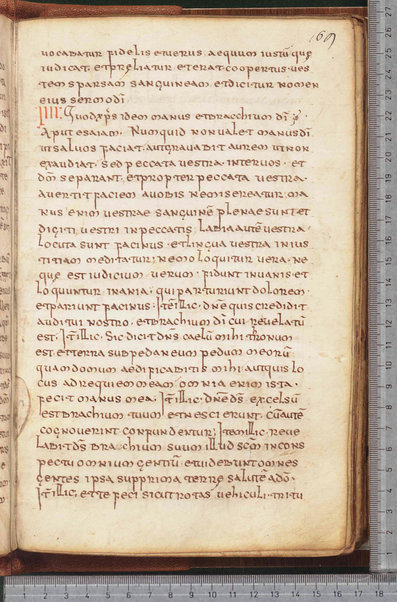 69
uocabatur fidelis etuerus. aequum iustūque
iudicat. etpreliatur eterat coopertus ues
tem sparsam sanguineam. etdicitur nomen
eius sermo dī
IIII. Quod xp̄s idem manus etbracchium dī
Aput esaiam. Numquid non ualet manus dī
ut saluos faciat. aut grauabit aurem ut non
exaudiat. sed peccata uestra inter uos. et
dm̄ separant. et propter peccata uestra
auertit faciem auobis ne misereatur. ma
nus enim uestrae sanguinē plenae sunt et
digiti uestri inpeccatis. Labia autē uestra
locuta sunt facinus. etlingua uestra inius
titiam meditatur; nemo loquitur uera. ne
que est iudicium uerum. fidunt inuanis et
loquuntur inania. quiparturiunt dolorem.
etpariunt facinus. Itē illic. dne quis credidit
auditui nostro. etbrachium dī cui reuelatū
est. Itē illic. Sic dicit dns caelū mihi thronum
est. etterra subpedaneum pedum meorū
quam domum aedificabitis mihi. aut quis lo
cus adrequiem meam. omnia enim ista.
fecit manus mea. Itē illic. dne ds excelsū
est brachium tuum et nescierunt. cū autē
cognouerint confundentur; Item illic. Reue
labit ds brachium suum illud scm incons
pectu omnium gentiū. etuidebunt omnes
gentes ipsa supprima terre salutē adō.
Itē illic. ecte feci sicut rotas uehiculi. tritu